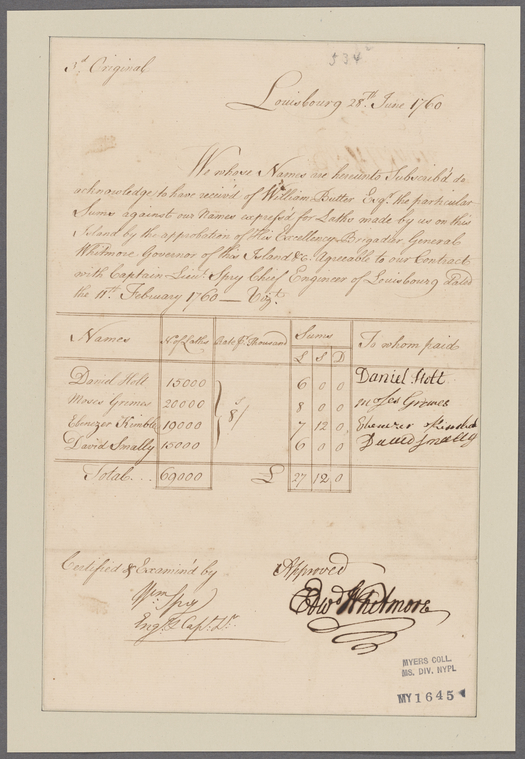 534
3d Original
Louisbourg 28th June 1760
We whose Names are hereunto Subscrib'd do
acknowledge to have receiv'd of William Butter Esqr. the particular
Sums against our Names express'd for Laths made by us on this
Island by the approbation of His Excellency Brigadr. General
Whitmore Governor of this Island &c. Agreeable to our Contract
with Captain Lieut. Spry Chief Engineer of Louisbourg dated
the 11th February 1760 — Vizt.
Names No. of Laths Rate pr. Thousand Sums To whom paid
£ S D
David Hott 15000 6 0 0 Daniel Hott
Moses Grimes 20000 8/ 8 0 0 moses Grimes
Ebenezer Kimble 19000 7 12 0 Ebenezer
David Smally 15000 6 0 0 David Smally
Total... 69000 £ 27 12 0
Certified & Examin'd by Approved
Wm Spry Edwd Whitmore
Engr. & Capt. Lt.
MYERS COLL.
MS. DIV. NYPL
MY 1645